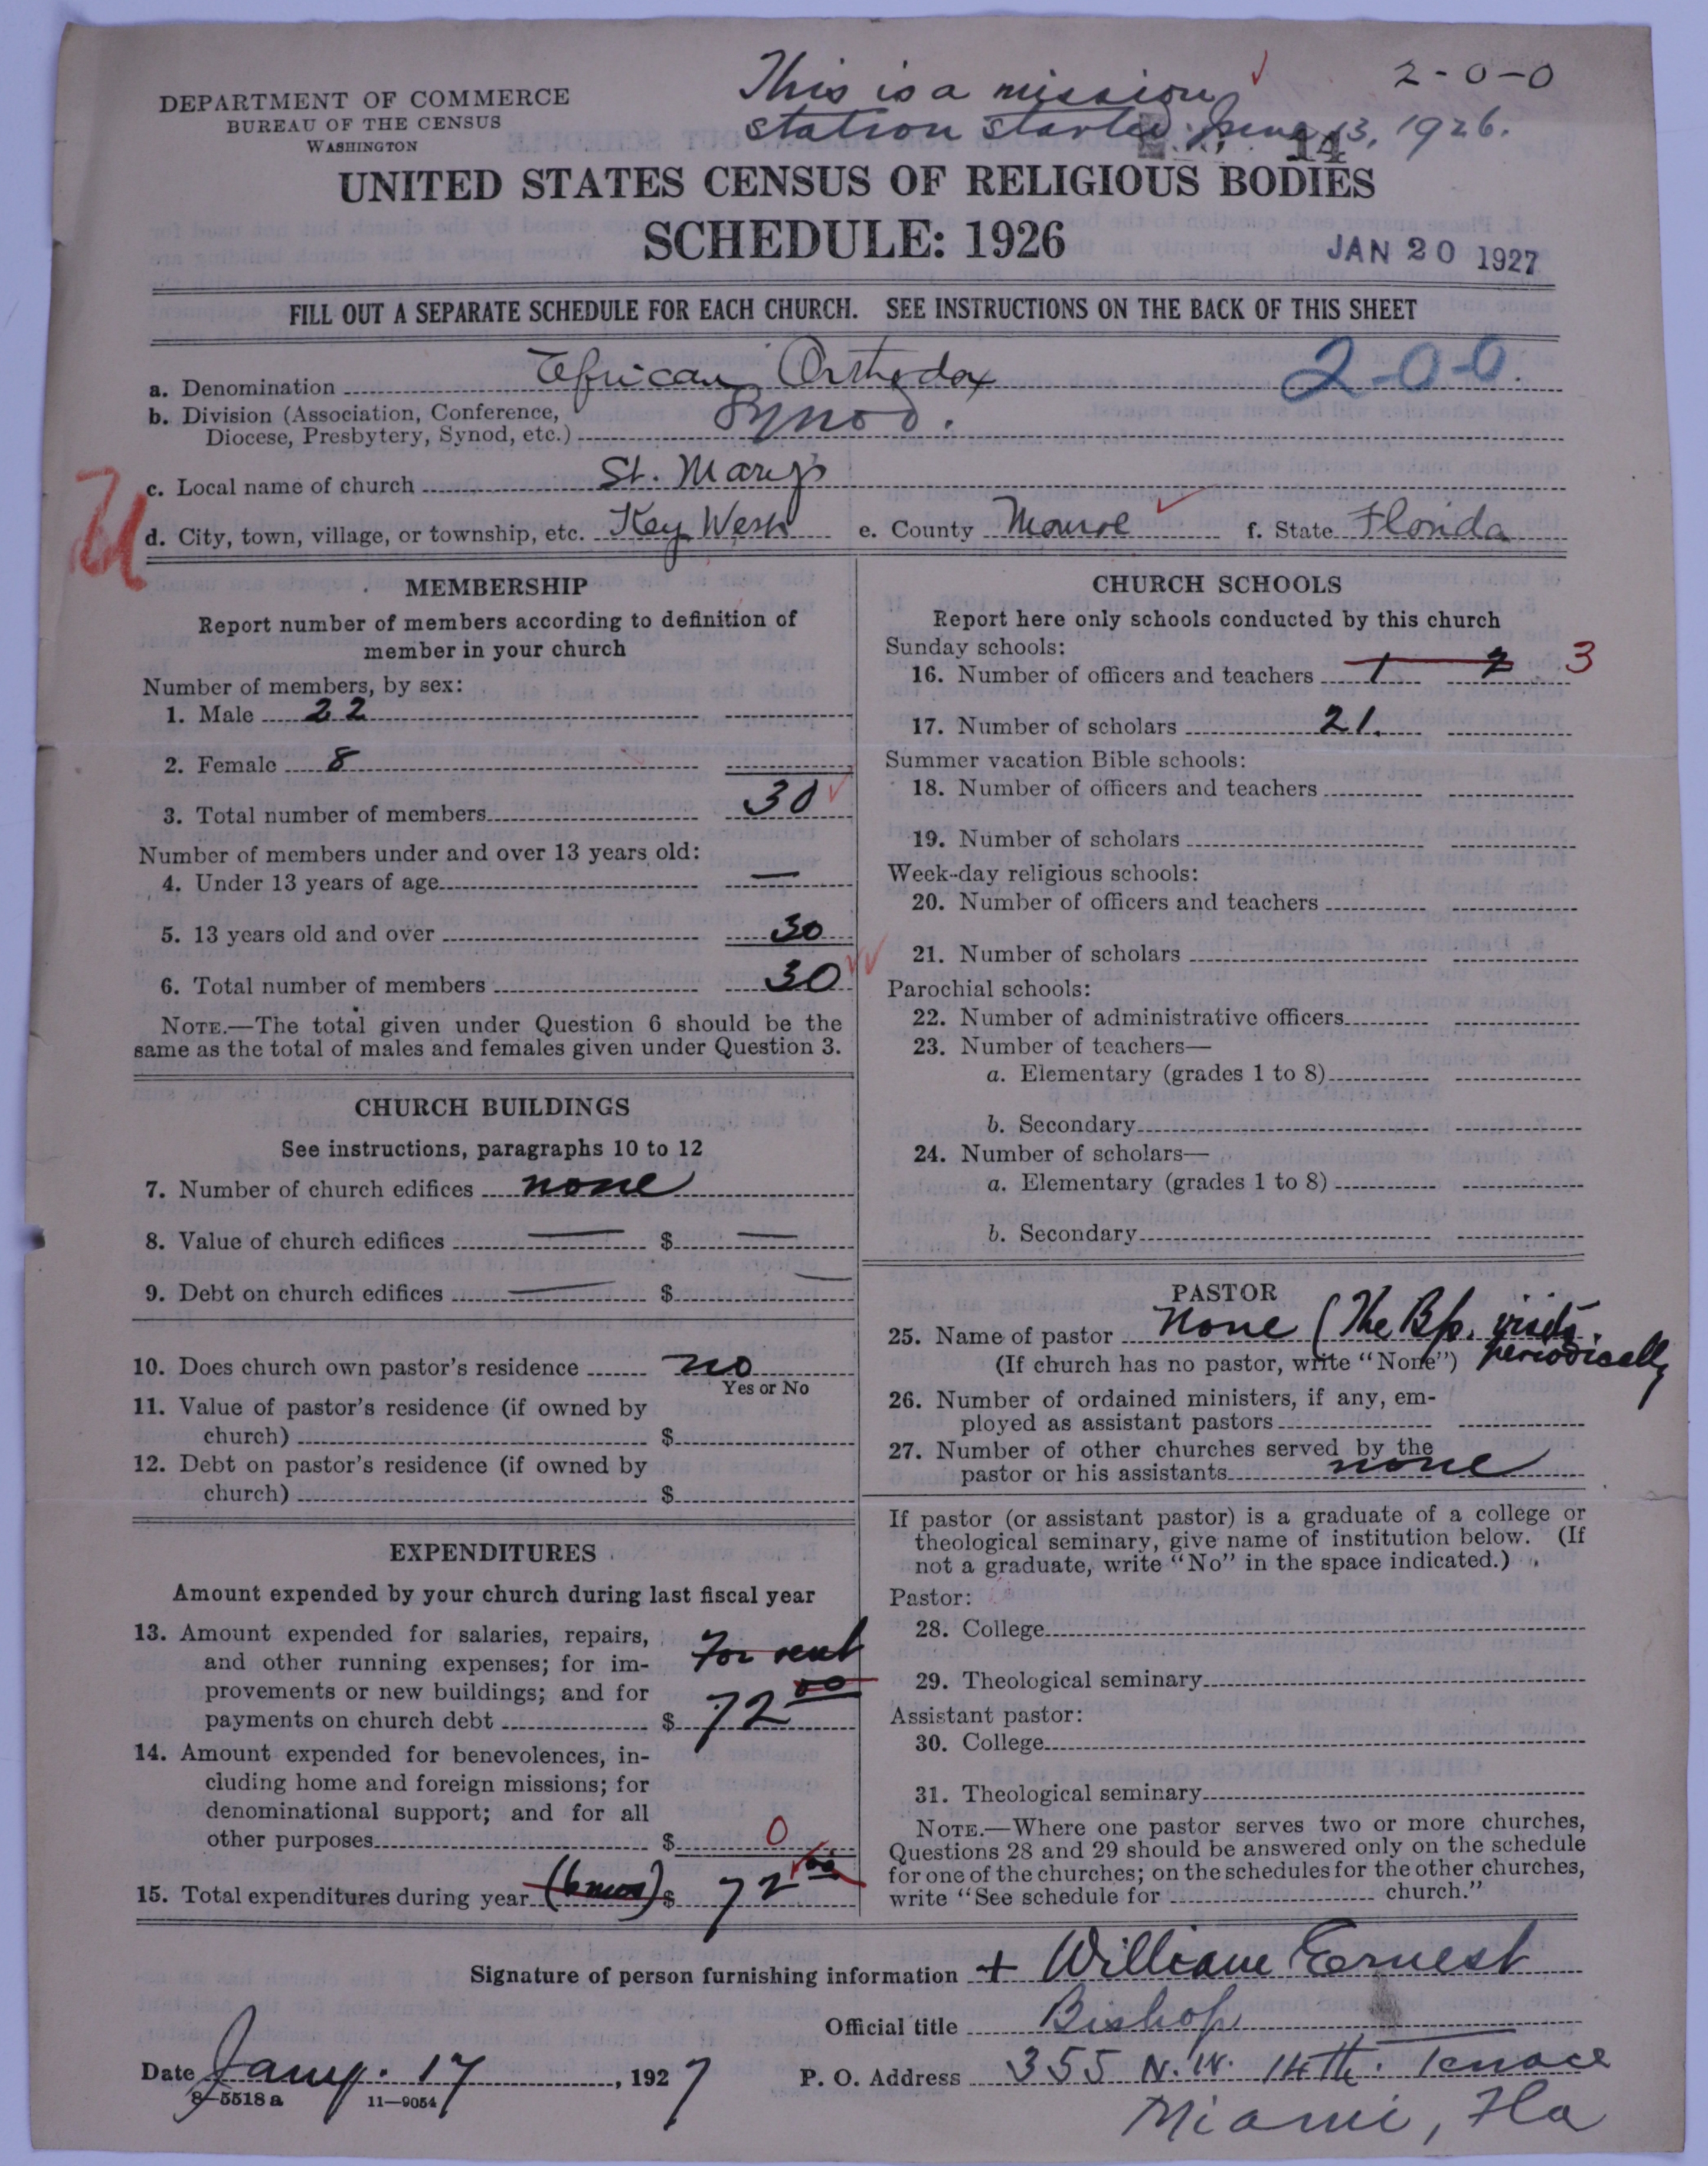 This is a mission
2-0-0
DEPARTMENT OF COMMERCE
BUREAU OF THE CENSUS
WASHINGTON
station started June 13, 1926.
14
UNITED STATES CENSUS OF RELIGIOUS BODIES
SCHEDULE: 1926
JAN 20 1927
FILL OUT A SEPARATE SCHEDULE FOR EACH CHURCH. SEE INSTRUCTIONS ON THE BACK OF THIS SHEET
a. Denomination African Orthodox 2-0-0.
b. Division (Association, Conference, Synod.
Diocese, Presbytery, Synod, etc.)
c. Local name of church St. Mary's
d. City, town, village, or township, etc. Key West e. County Monroe f. State Florida
MEMBERSHIP
Report number of members according to definition of
member in your church
Number of members, by sex:
1. Male 22
2. Female 8
3. Total number of members 30
Number of members under and over 13 years old:
4. Under 13 years of age —
5. 13 years old and over 30
6. Total number of members 30
NOTE.—The total given under Question 6 should be the
same as the total of males and females given under Question 3.
CHURCH BUILDINGS
See instructions, paragraphs 10 to 12
7. Number of church edifices none
8. Value of church edifices — $ —
9. Debt on church edifices — $ —
10. Does church own pastor's residence no
Yes or No
11. Value of pastor's residence (if owned by
church) $
12. Debt on pastor's residence (if owned by
church) $
EXPENDITURES
Amount expended by your church during last fiscal year
13. Amount expended for salaries, repairs, For rent
and other running expenses; for im-
provements or new buildings; and for
payments on church debt $ 72 00
14. Amount expended for benevolences, in-
cluding home and foreign missions; for
denominational support; and for all
other purposes $ 0
15. Total expenditures during year (6 mos) $ 72 00
CHURCH SCHOOLS
Report here only schools conducted by this church
Sunday schools:
16. Number of officers and teachers 1 2 3
17. Number of scholars 21.
Summer vacation Bible schools:
18. Number of officers and teachers
19. Number of scholars
Week-day religious schools:
20. Number of officers and teachers
21. Number of scholars
Parochial schools:
22. Number of administrative officers
23. Number of teachers—
a. Elementary (grades 1 to 8)
b. Secondary
24. Number of scholars—
a. Elementary (grades 1 to 8)
b. Secondary
PASTOR
25. Name of pastor None (The Bp. visits
(If church has no pastor, write "None") periodically
26. Number of ordained ministers, if any, em-
ployed as assistant pastors
27. Number of other churches served by the
pastor or his assistants none
If pastor (or assistant pastor) is a graduate of a college or
theological seminary, give name of institution below. (If
not a graduate, write "No" in the space indicated.)
Pastor:
28. College
29. Theological seminary
Assistant pastor:
30. College
31. Theological seminary
NOTE.—Where one pastor serves two or more churches,
Questions 28 and 29 should be answered only on the schedule
for one of the churches; on the schedules for the other churches,
write "See schedule for church."
Signature of person furnishing information + William Ernest
Official title Bishop
Date Jany. 17, 1927 P. O. Address 355 N.W. 14th. Terrace
8-5518 a 11-9054
Miami, Fla